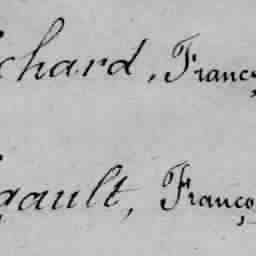 chard, Franç
gault, Franço